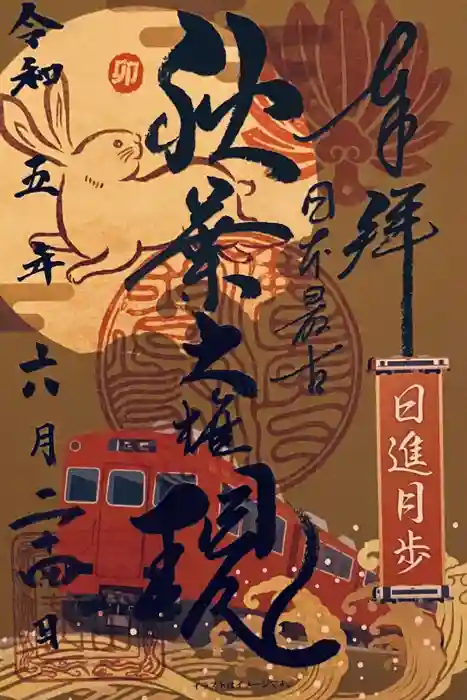 奉拝
日本最古
秋葉大権現
令和五年六月二十四日
卯
日進月歩